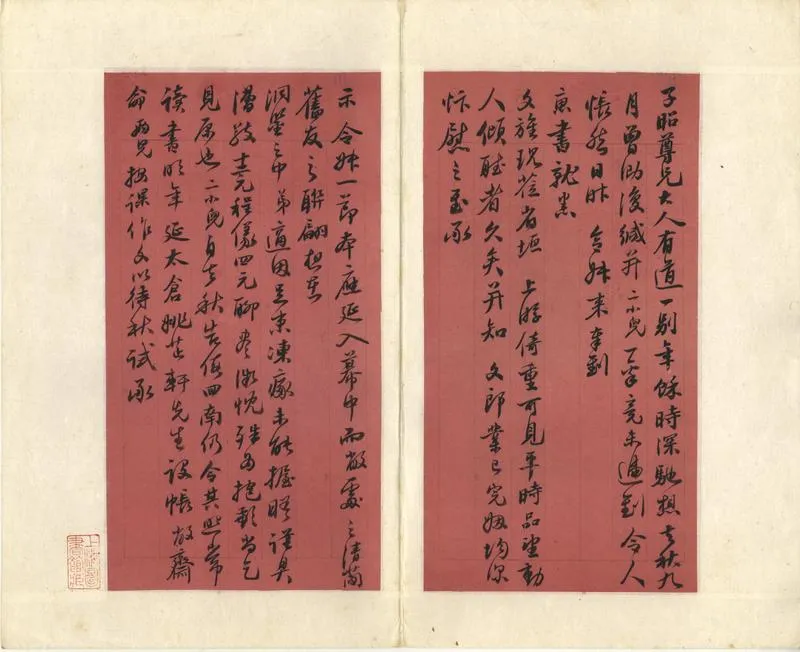 子昭尊兄大人有道一别年餘時深馳想去秋九
月曾泐復緘并二小兒一稟竟未遞到令人
悵然日昨 令妹来奉到
惠書就悉
文旌現莅省垣 上游倚重可見平時品望動
人傾聽者久矣并知 文郎業已完姻均深
忭慰之至承
示 令妹一節本應延入幕中而敝處之清蘭
舊友之聯翩想在
洞鑒之中弟適因足患凍瘃未能握晤謹具
潘敬十二元程儀四元聊盡微忱殊多抱歉尚乞
見原也二小兒自去秋告假回南仍令其照常
讀書明年延太倉姚芷軒先生設帳敝齋
命兩兒按課作文以待秋試承